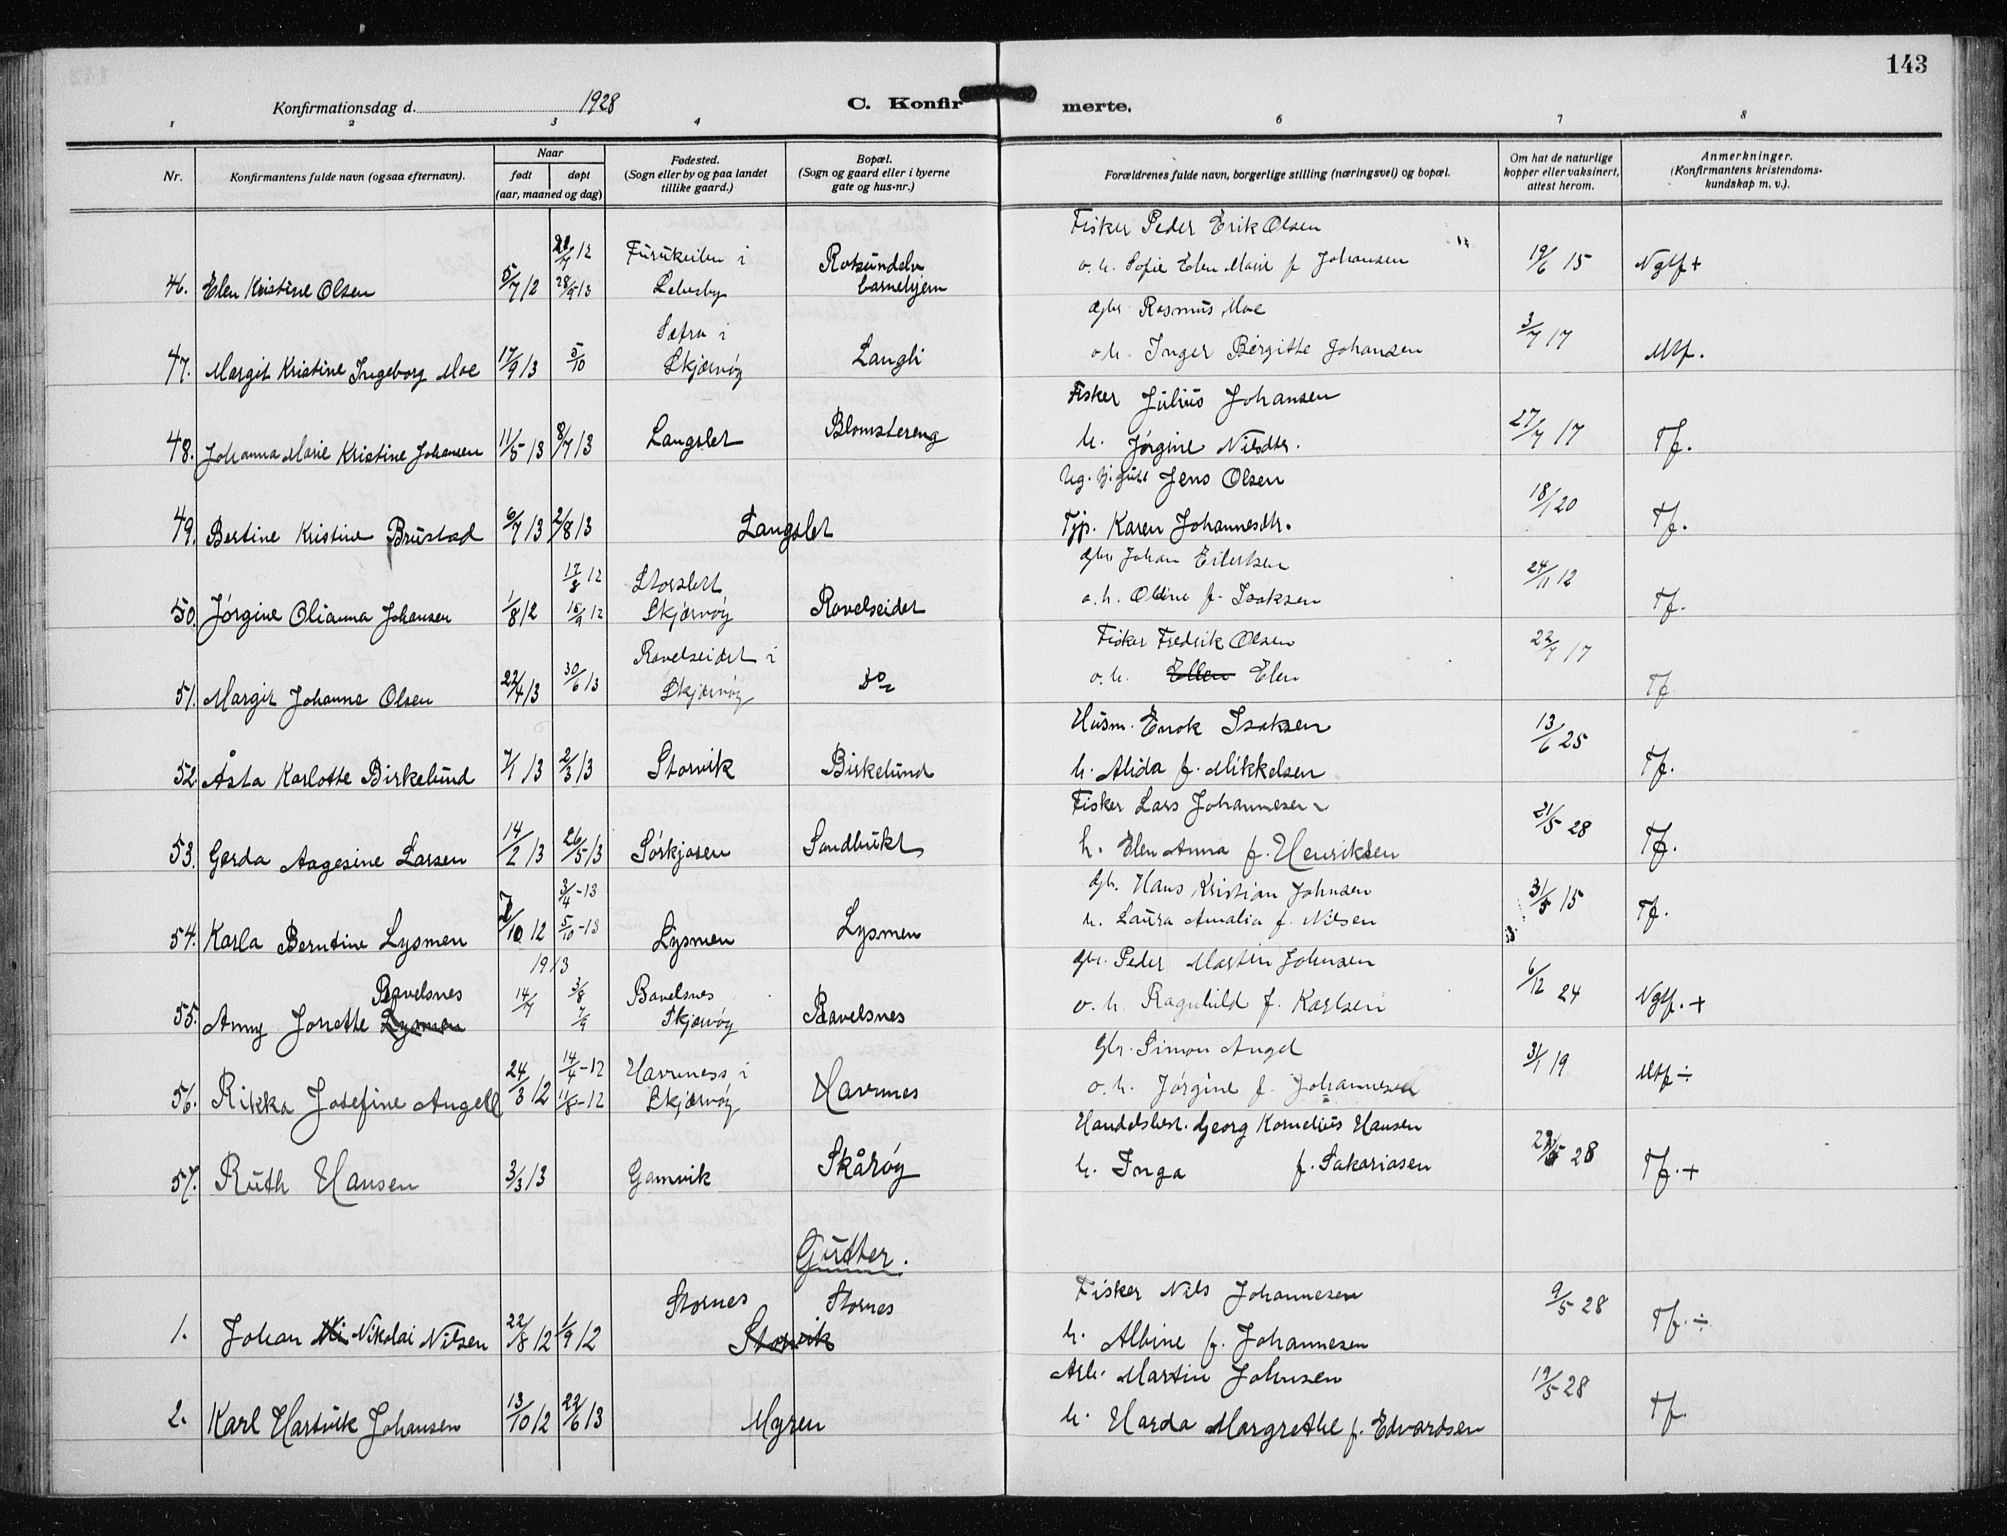 143
Konfirmationsdag d. 1928
C. Konfirmerte.
1 2 3 4 6 7 8
Nr.
Konfirmantens fulde navn (ogsaa efternavn).
Naar
født
døpt
(aar, maaned og dag)
Fødested.
(Sogn eller by og paa landet
tillike gaard.)
Bopæl.
(Sogn og gaard eller i byerne
gate og hus-nr.)
Forældrenes fulde navn, borgerlige stilling (næringsvei) og bopæl.
Om hat de naturlige
kopper eller vaksinert,
attest herom.
Anmerkninger.
(Konfirmantens kristendoms-
kundskap m. v.).
Fisker Peder Erik Olsen
46. Elen Kristine Olsen 5/7 12 28/9 13 Lebesby barnehjem o. h. Sofie Elen Marie f Johansen 19/6 15 Ngtf +
Gbr. Rasmus Moe
47. Margit Kristine Ingeborg Moe 17/9 13 5/10 Sætra i Skjærvöy Langli o. h. Inger Bergitte Johansen 3/7 17 Mtf.
Fisker Julius Johansen
48. Johanna Marie Kristine Johansen 11/5 13 8/7 13 Langslet Blomstereng h. Jörgine Nilsdtr. 27/7 17 Tf.
Jens Olsen
49. Bertine Kristine Brustad 6/7 13 2/8 13 Langslet Karen Johannesdtr. 18/1 20 Tf.
Gbr. Johan Eilertsen
50. Jörgine Olianna Johansen 1/8 12 17/8 12 15/9 12 Storslett Skjærvöy Ravelseidet o. h. Oldine f. Isaksen 24/11 12 Tf.
Fisker Fredrik Olsen
51. Margit Johanne Olsen 22/4 13 30/6 13 Ravelseidet i Skjærvöy do o. h. Ellen Elen 22/7 17 Tf
Husm. Enok Isaksen
52 Åsta Karlotte Birkelund 7/1 13 2/3 13 Storvik Birkelund h. Alida f. Mikkelsen 13/6 25 Tf.
Fisker Lars Johannesen
53. Gerda Aagesine Larsen 14/2 13 26/5 13 Sörkjosen Sandbukt h. Elen Anna f. Henriksen 21/5 28 Tf.
Gbr. Hans Kristian Johnsen
54. Karla Berntine Lysmen 7/10 12 3/4-13 5/10-13 Lysmen Lysmen h. Laura Amalia f. Nilsen 31/5 15 Tf.
1913
Gbr. Peder Martin Johnsen
Ravelsnes
55. Anny Jonette Lysmen 14/7 3/8 7/9 Ravelsnes Skjærvöy Ravelsnes o. h. Ragnhild f. Karlsen 6/12 24 Ngtf. +
Gbr. Simon Angel
56. Rikka Josefine Angell 24/3 12 14/4-12 11/8-12 Havnness i Skjærvöy Havnnes o. h. Jörgine f. Johannesen 31/1 19 Mtf ÷
Handelsbest. Georg Kornelius Hansen
57. Ruth Hansen 3/3 13 Gamvik Skåröy h. Inga f. Sakariasen 28 Tf. +
Gutter.
Stornes Stornes Fisker Nils Johannesen
1. Johan Ni Nikolai Nilsen 22/8 12 1/9 12 Storvik h. Albine f. Johannesen 9/5 28 Tf. ÷
Arb. Martin Johnsen
2. Karl Hartvik Johansen 13/10 12 22/6 13 Myren h. Harda Margrethe f. Edvardsen 19/5 28 Tf.